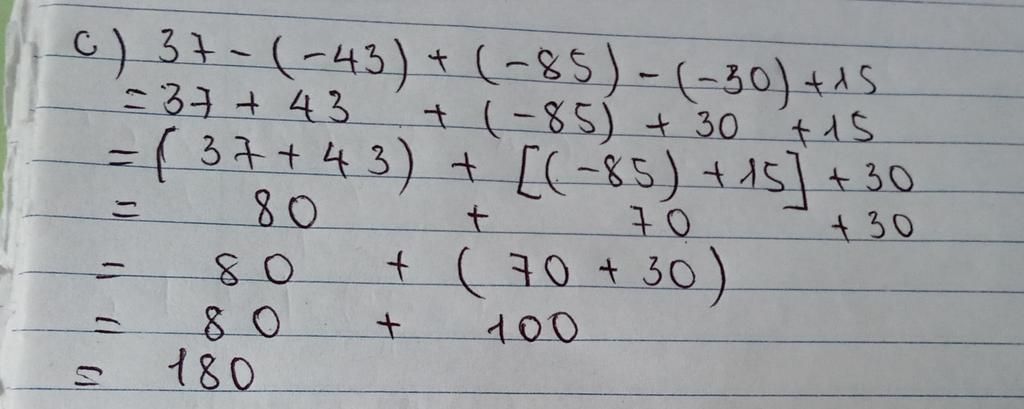 c) 37 - (-43) + (-85) - (-30) + 15
= 37 + 43 + (-85) + 30 + 15
= (37 + 43) + [(-85) + 15] + 30
= 80 + 70 + 30
= 80 + (70 + 30)
= 80 + 100
= 180